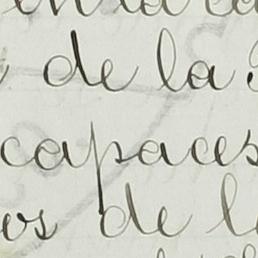 de la
capaces
es de l